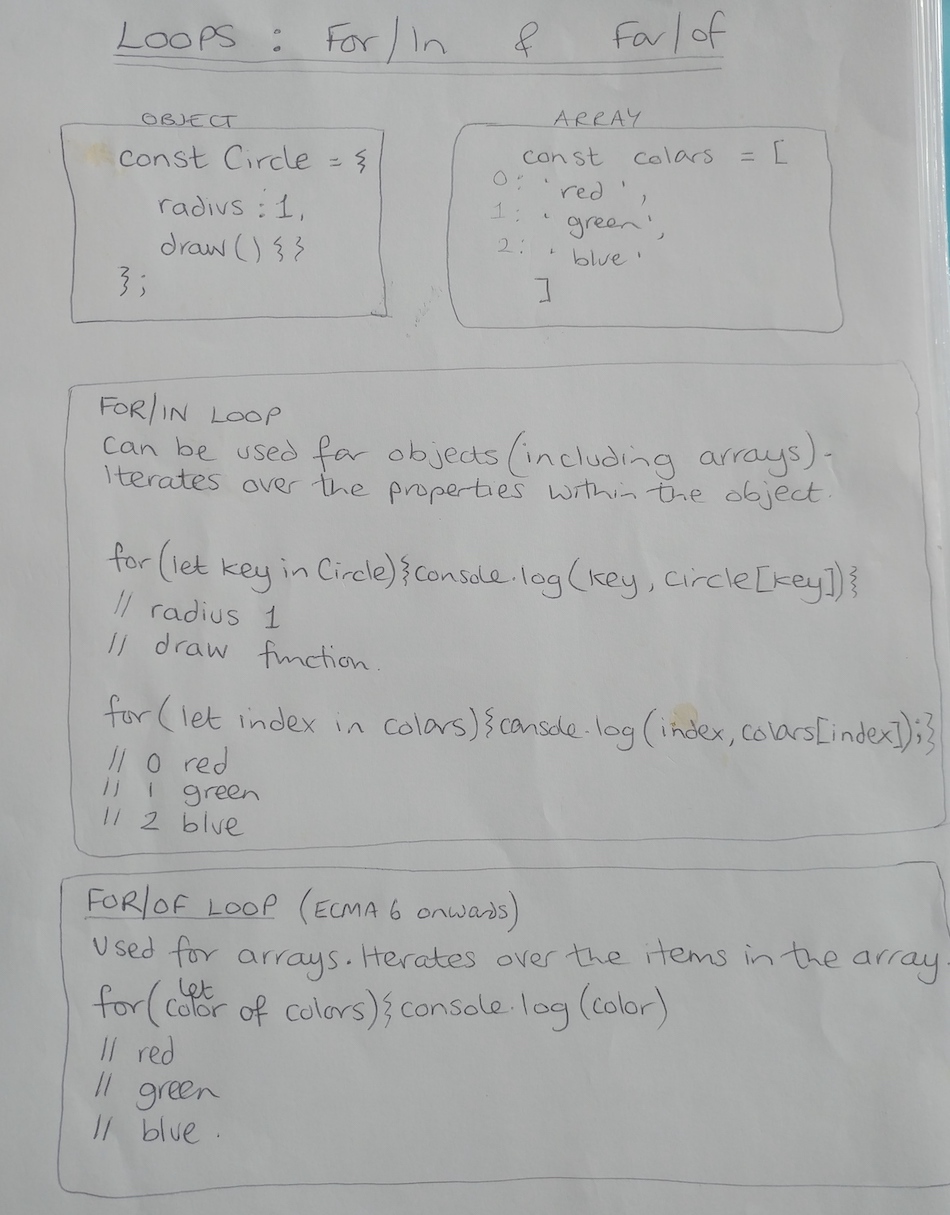 LOOPS : For/In & For/of
OBJECT
const Circle = {
radius : 1,
draw() { }
};
ARRAY
const colors = [
0: 'red',
1: 'green',
2: 'blue'
]
FOR/IN LOOP
can be used for objects (including arrays).
Iterates over the properties within the object.
for (let key in Circle) { console.log(key, circle[key]) }
// radius 1
// draw function.
for (let index in colors) { console.log(index, colors[index]); }
// 0 red
// 1 green
// 2 blue
FOR/OF LOOP (ECMA 6 onwards)
Used for arrays. Iterates over the items in the array.
for (let color of colors) { console.log (color)
// red
// green
// blue.